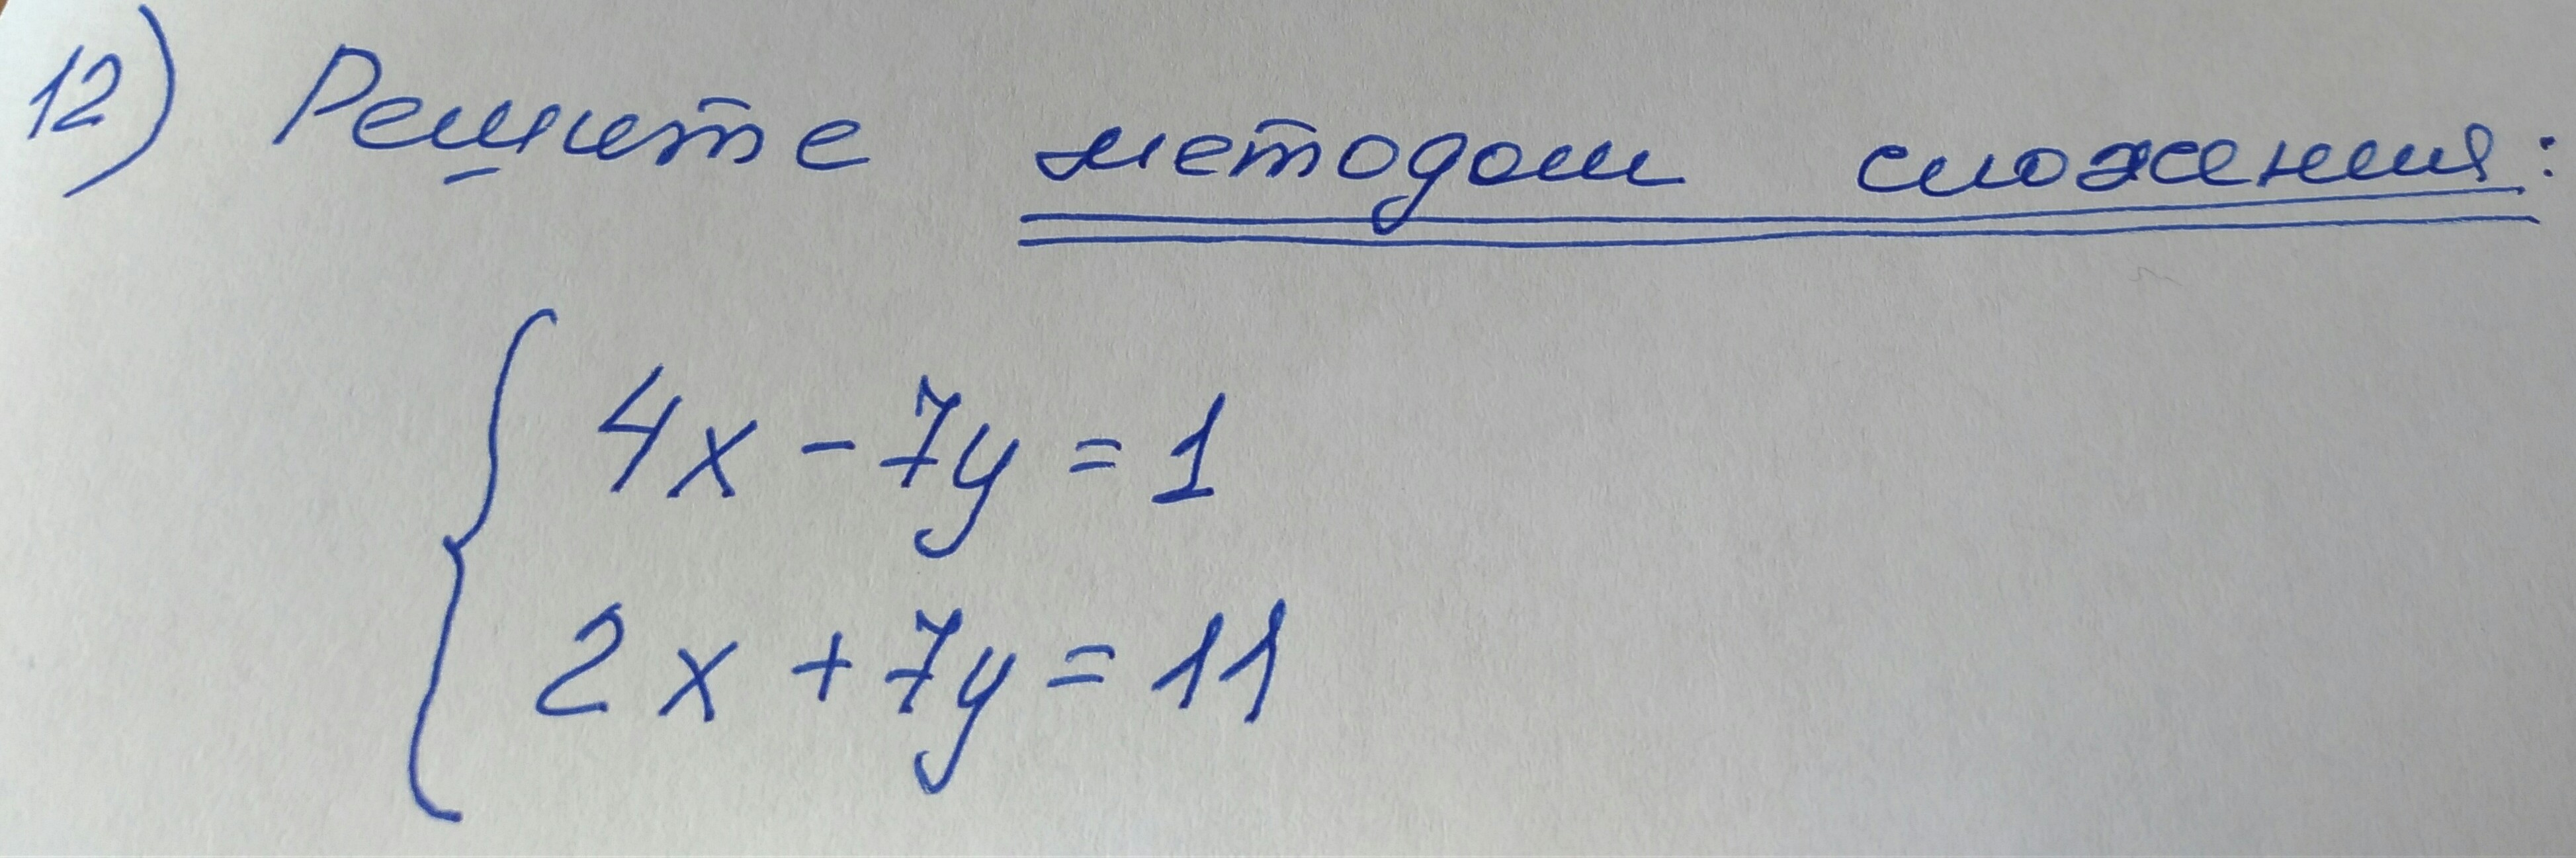 12) Решите методом сложения:
4x - 7y = 1
2x + 7y = 11